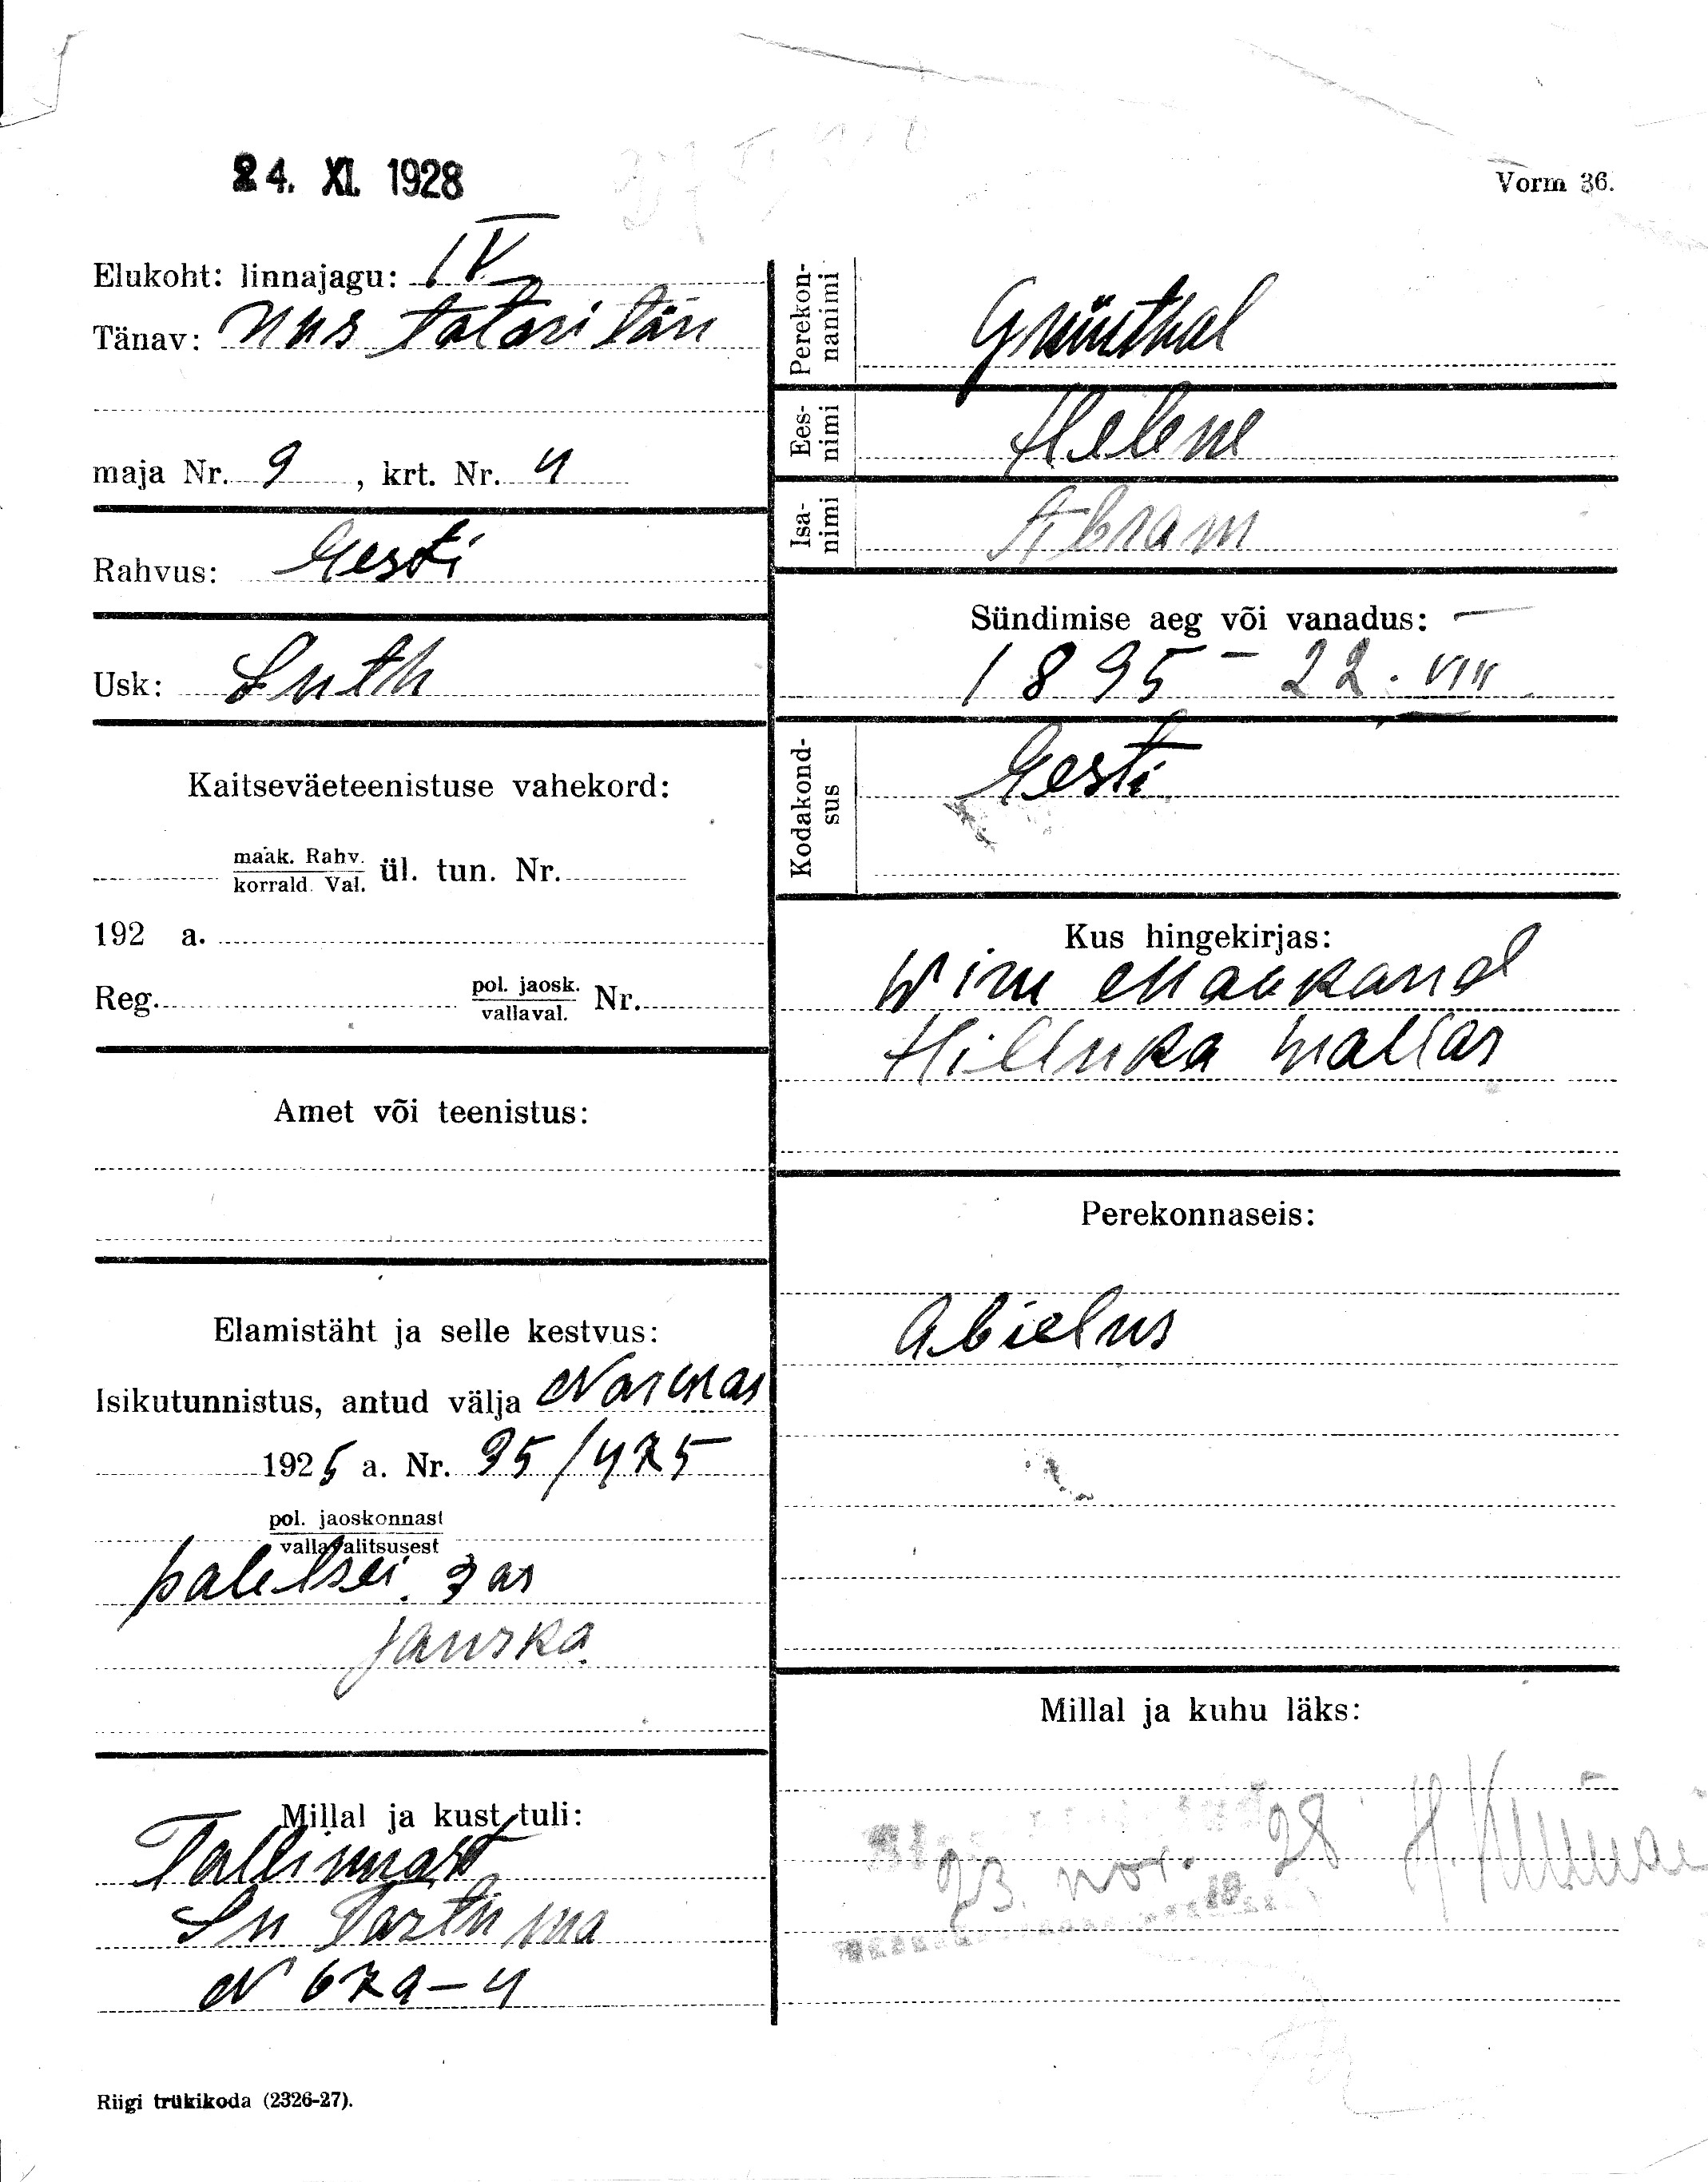 24. XI. 1928
Vorm 36.
Elukoht: linnajagu: IV
Tänav: Uus Tatari tän
maja Nr. 9, krt. Nr. 4
Rahvus: Eesti
Usk: Luth
Kaitseväeteenistuse vahekord:
maak. Rahv.
korrald. Val. ül. tun. Nr.
192 a.
Reg. pol. jaosk.
vallaval. Nr.
Amet või teenistus:
Elamistäht ja selle kestvus:
Isikutunnistus, antud välja Narvas
1925 a. Nr. 95/475
pol. jaoskonnast
vallavalitsusest
Millal ja kust tuli:
Tallinnast
Su Tartu ma
N 67a-4
Perekon-
nanimi Grünthal
Ees-
nimi Helene
Isa-
nimi Abram
Sündimise aeg või vanadus:
1895 - 22. VIII
Kodakond-
sus Eesti
Kus hingekirjas:
Wiru Maakond
Illuka wallas
Perekonnaseis:
Abielus
Millal ja kuhu läks:
23. nov. 28
Riigi trükikoda (2326-27).